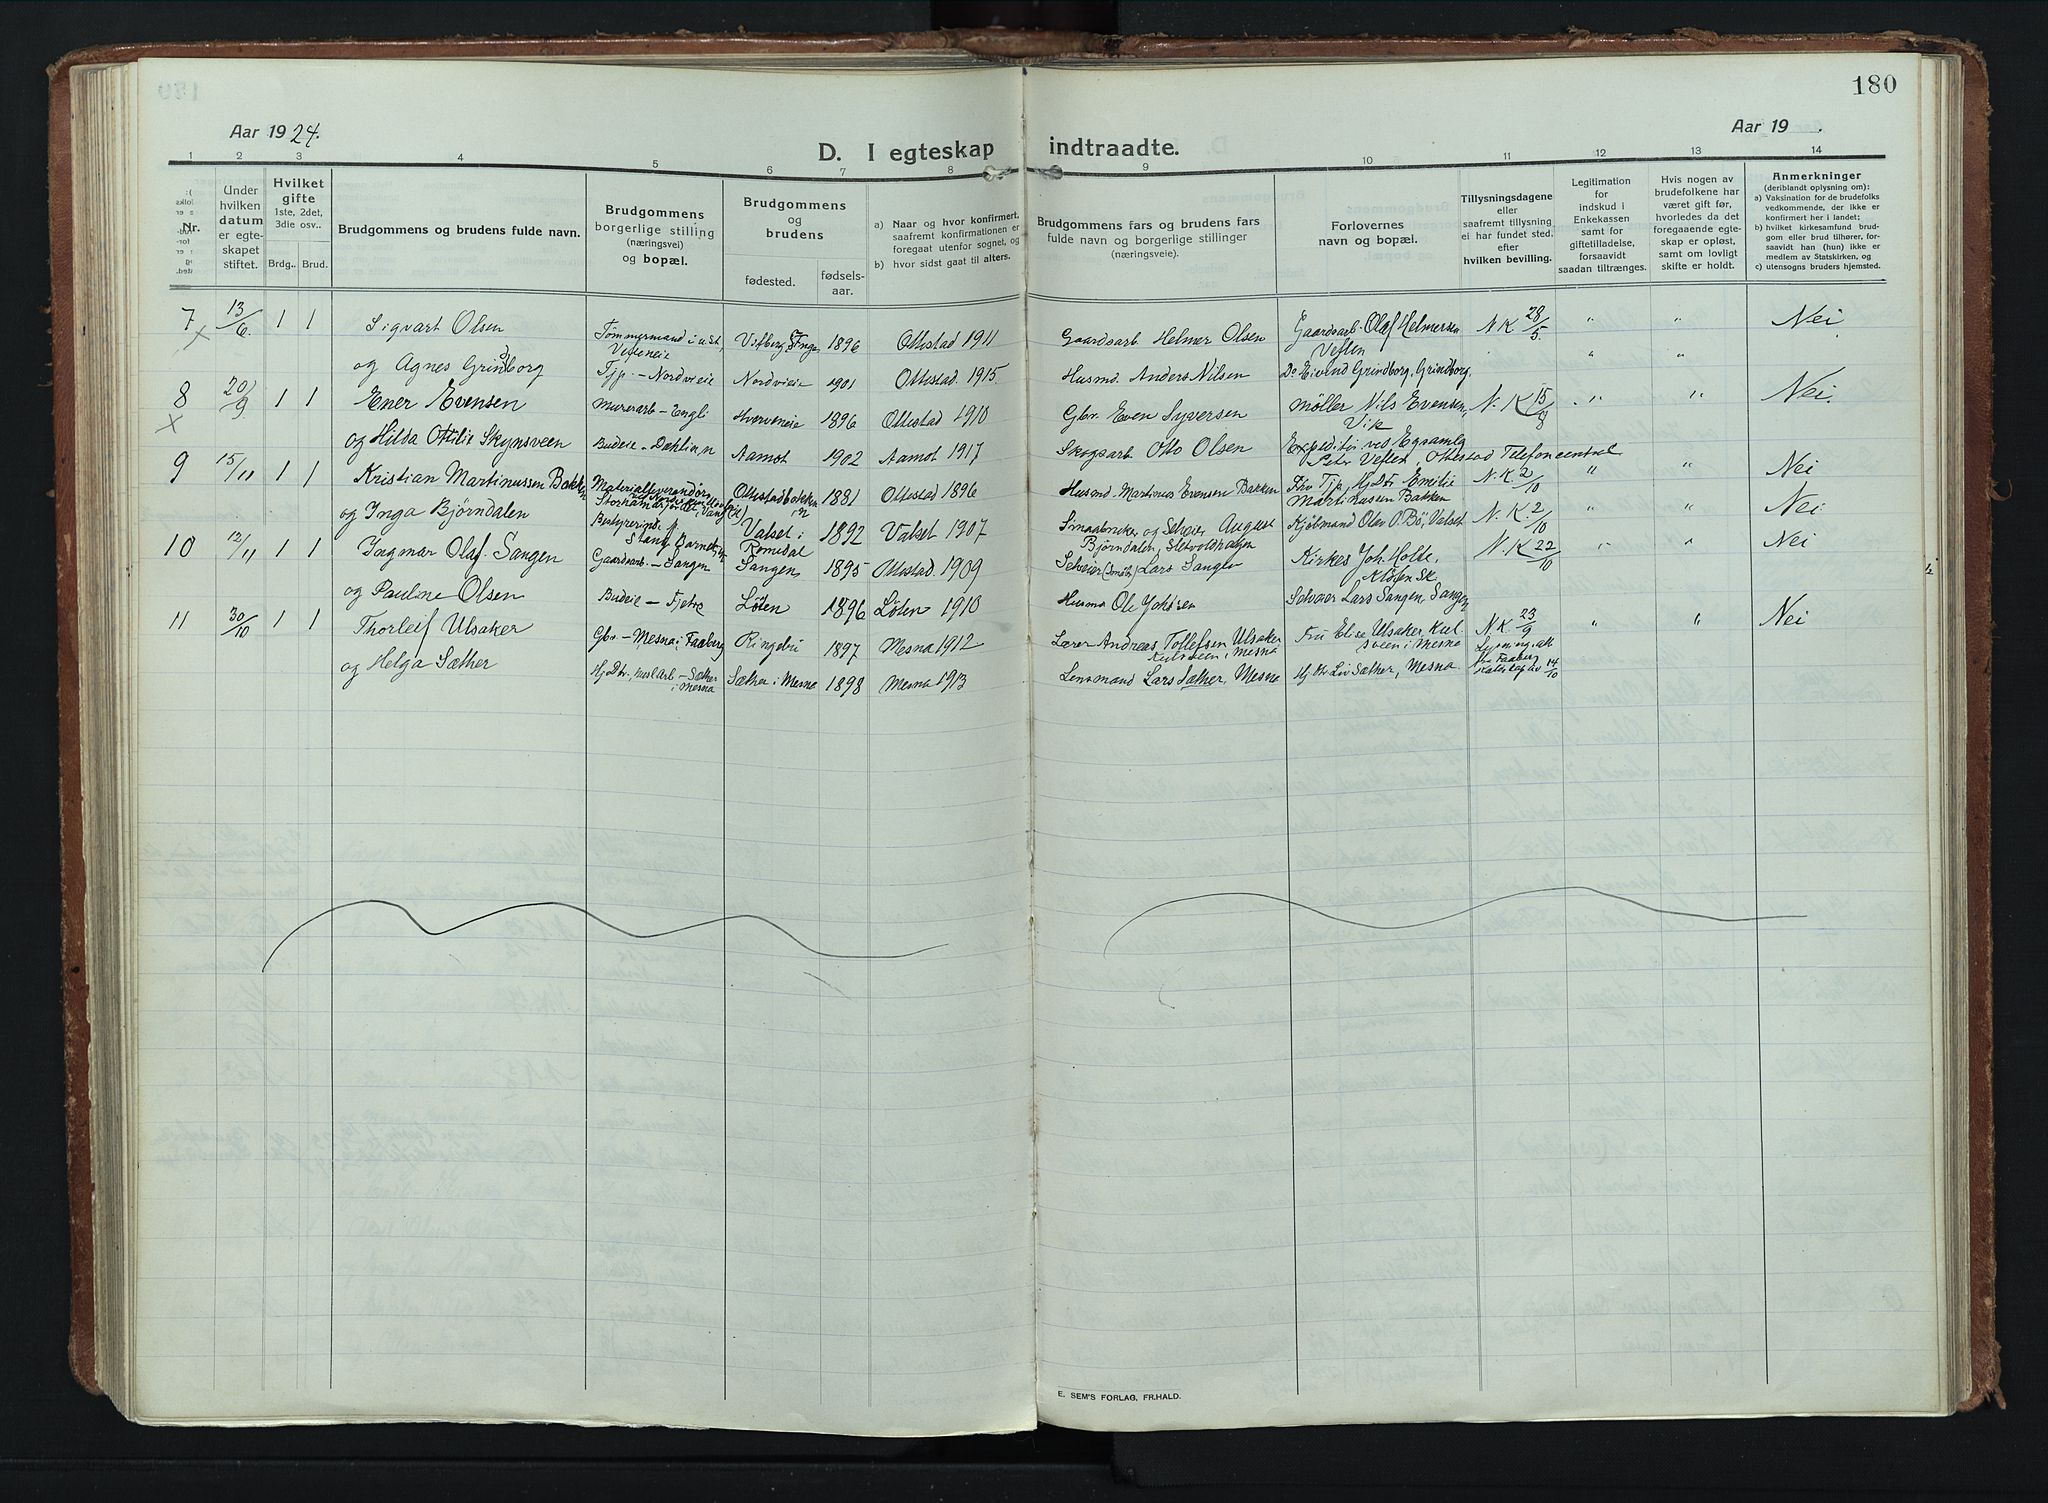 180
Aar 1924.
Aar 19 .
D. I egteskap indtraadte.
1 2 3 4 5 6 7 8 9 10 11 12 13 14
Nr.
Under hvilken datum er egteskapet stiftet.
Hvilket gifte
1ste, 2det, 3die osv..
Brdg.. Brud.
Brudgommens og brudens fulde navn.
Brudgommens borgerlige stilling (næringsvei) og bopæl.
Brudgommens og brudens
fødested.
fødselsaar.
a) Naar og hvor konfirmert, saafremt konfirmationen er foregaat utenfor sognet, og
b) hvor sidst gaat til alters.
Brudgommens fars og brudens fars fulde navn og borgerlige stillinger (næringsveie).
Forlovernes navn og bopæl.
Tillysningsdagene eller saafremt tillysning ei har fundet sted, efter hvilken bevilling.
Legitimation for indskud i Enkekassen samt for giftetilladelse, forsaavidt saadan tiltrænges.
Hvis nogen av brudefolkene har været gift før, hvorledes da det foregaaende egteskap er opløst, samt om lovligt skifte er holdt.
Anmerkninger
(deriblandt oplysning om):
a) Vaksination for de brudefolks vedkommende, der ikke er konfirmert her i landet;
b) hvilket kirkesamfund brudgom eller brud tilhører, forsaavidt han (hun) ikke er medlem av Statskirken, og
c) utensogns bruders hjemsted.
7 13/6 1 1 Sigvart Olsen Tømmermand Vefleneie 1896 Ottestad 1911 Gaardsarb Helmer Olsen Gaardsarb. Olaf Helmersen Veflen N K 28/5 " " Nei
og Agnes Grindborg Tjp. - Nordvieie Nordvieie 1901 Ottestad. 1915. Husmd. Anders Nilsen Do Eivind Grindborg, Grindborg " "
8 20/9 1 1 Ener Evensen Murerarb - Engli 1896 Ottestad 1910 Gbr. Even Syversen Møller Nils Evensen, Vik N. K 15/8 " " Nei
og Hilda Otilie Skynsveen Budeie - Dæhlin Aamot 1902 Aamot 1917 Skogsarb Otto Olsen Peter Veflen, Ottestad Telefoncentral
9 15/11 1 1 Kristian Martinussen Bakken Materialleverandør 1881 Ottestad 1896 Husmd. Martinus Evensen Bakken Emilie Martinussen Bakken N. K. 2/10 " " Nei
og Inga Bjørndalen Valset i Romedal 1892 Valset 1907 og Selveier August Bjørndalen Kjøbmand Olav O. Bø, Valset N. K. 2/10 " " Nei
10 12/11 1 1 Ingmar Olaf Sangen Gaardsarb. - Sangen Sangen 1895 Ottestad. 1909 Selveier Lars Sangen Kirkes Joh. Holte N. K 22/10 " Nei
og Pauline Olsen Budeie - Fjetre Løten 1896 Løten 1910 Husma Ole Selveier Lars Sangen, Sangen
11 30/10 1 1 Thorleif Ulsaker Gbr. - Mesna i Faaberg Ringebu 1897 Mesna 1912 Lærer Andreas Tollefsen Ulsaker i Mesna Fru Elise Ulsaker i Mesna N K 23/9 " " Nei
og Helga Sæther Sæther i Mesna Sæther i Mesna 1898 Mesna 1913 Lensmand Lars Sæther, Mesna Liv Sæther, Mesna. Faaberg 14/10
E. SEM'S FORLAG, FR.HALD.